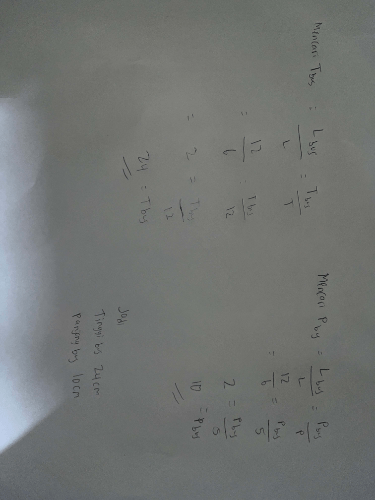 Mencari Tbus = Lbus/L = Tbus/T
= 12/6 = Tbus/12
= 2 = Tbus/12
24 = Tbus
Mencari Pbus = Lbus/L = Pbus/P
= 12/6 = Pbus/5
2 = Pbus/5
10 = Pbus
Jadi
Tinggi bus 24 cm
Panjang bus 10 cm